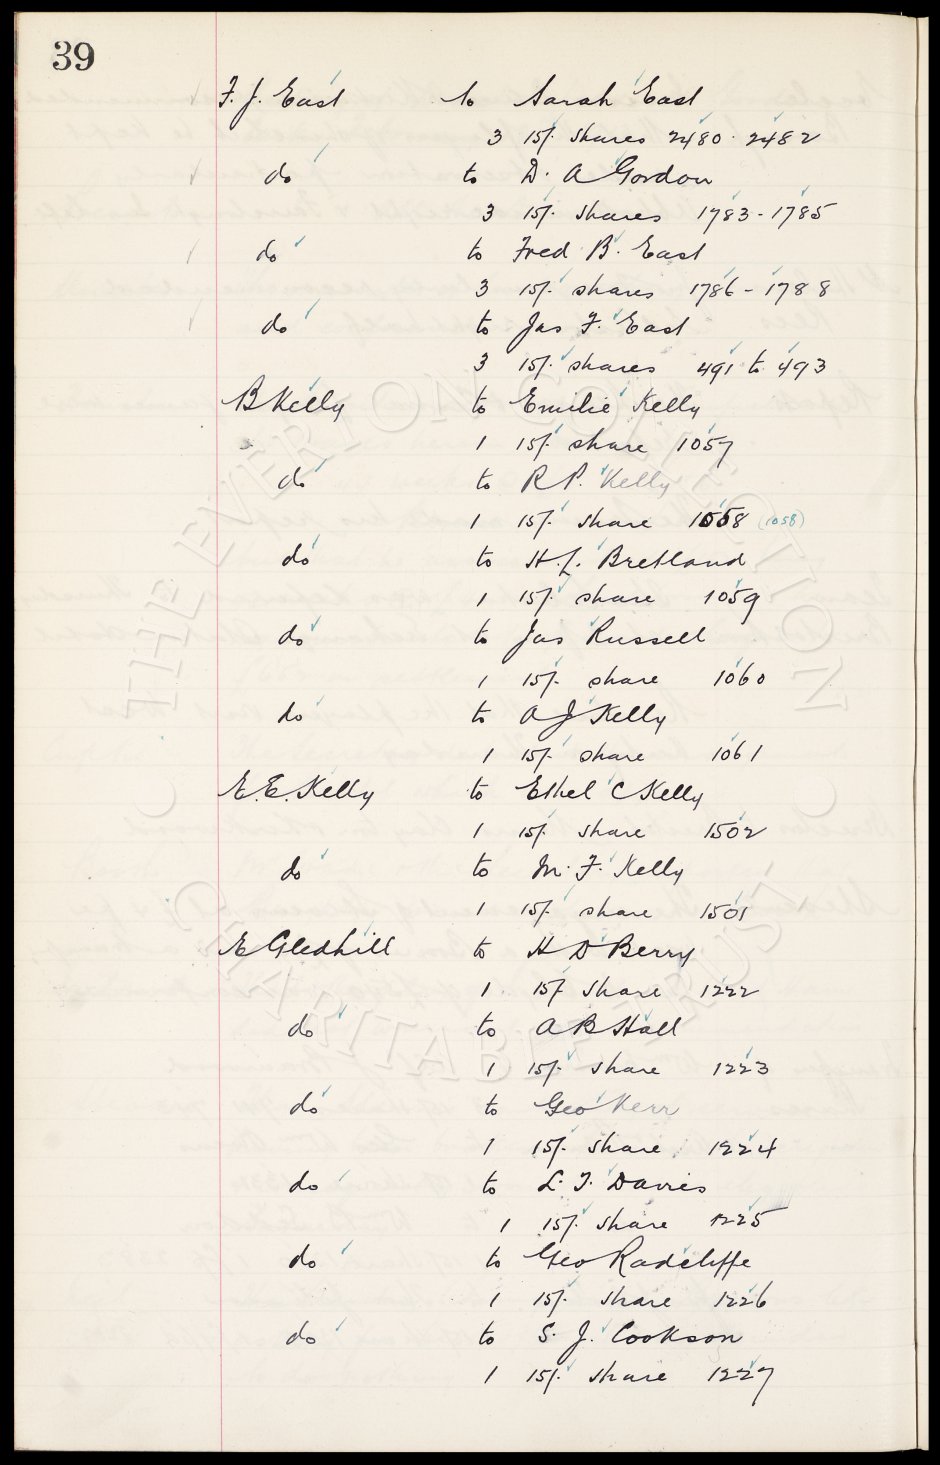 39
F. J. East to Sarah East
3 15/- shares 2480 - 2482
do to D. A Gordon
3 15/- shares 1783 - 1785
do to Fred B. East
3 15/- shares 1786 - 1788
do to Jas F. East
3 15/- shares 491 to 493
B Kelly to Emilie Kelly
1 15/- share 1057
do to R P. Kelly
1 15/- share 1058 (1058)
do to H. L. Bretland
1 15/- share 1059
do to Jas Russell
1 15/- share 1060
do to A J Kelly
1 15/- share 1061
E. E. Kelly to Ethel C Kelly
1 15/- share 1502
do to M. F. Kelly
1 15/- share 1501
E Gledhill to H D Berry
1 15/- share 1222
do to A B Hall
1 15/- share 1223
do to Geo Kerr
1 15/- share 1224
do to L. T. Davies
1 15/- share 1225
do to Geo Radcliffe
1 15/- share 1226
do to S. J. Cookson
1 15/- share 1227
THE EVERTON COLLECTION
CHARITABLE TRUST